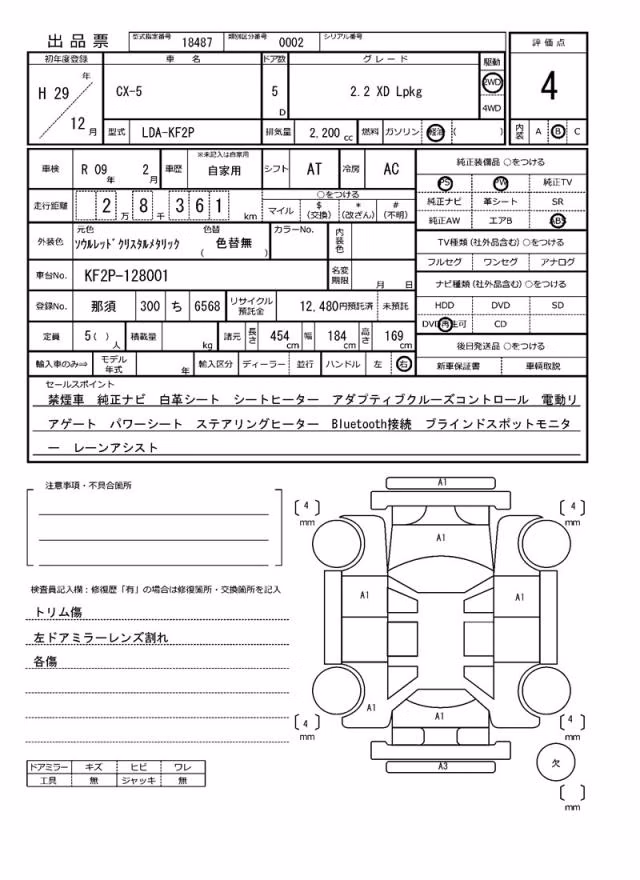 出品票 型式指定番号 18487 類別区分番号 0002 シリアル番号
初年度登録 車名 ドア数 グレード 駆動 評価点
H 29 年 12 月 CX-5 5 D 2.2 XD Lpkg 2WD 4WD 4
型式 LDA-KF2P 排気量 2,200 cc 燃料 ガソリン 軽油 ( ) 内装 A B C
車検 R 09 年 2 月 車歴 ※未記入は自家用 自家用 シフト AT 冷房 AC
走行距離 2 万 8 千 3 6 1 km ○をつける マイル $ (交換) * (改ざん) # (不明)
外装色 元色 ソウルレッドクリスタルメタリック 色替 ( 色替無 ) カラーNo. 内装色
車台No. KF2P-128001 名変期限 月 日
登録No. 那須 300 ち 6568 リサイクル預託金 12,480円預託済 未預託
定員 5( ) 人 積載量 kg 諸元 長さ 454 cm 幅 184 cm 高さ 169 cm
輸入車のみ⇒ モデル年式 年 輸入区分 ディーラー 並行 ハンドル 左 右
純正装備品 ○をつける
PS PW 純正TV
純正ナビ 革シート SR
純正AW エアB ABS
TV種類 (社外品含む) ○をつける
フルセグ ワンセグ アナログ
ナビ種類 (社外品含む) ○をつける
HDD DVD SD
DVD再生可 CD
後日発送品 ○をつける
新車保証書 車輌取説
セールスポイント
禁煙車 純正ナビ 白革シート シートヒーター アダプティブクルーズコントロール 電動リ
アゲート パワーシート ステアリングヒーター Bluetooth接続 ブラインドスポットモニタ
ー レーンアシスト
注意事項・不具合箇所
検査員記入欄：修復歴「有」の場合は修復箇所・交換箇所を記入
トリム傷
左ドアミラーレンズ割れ
各傷
ドアミラー キズ ヒビ ワレ
工具 無 ジャッキ 無
A1
[ 4 ] mm [ 4 ] mm
A1
A1 A1
A1 A1
[ 4 ] mm [ 4 ] mm
A3
欠
[ ] mm